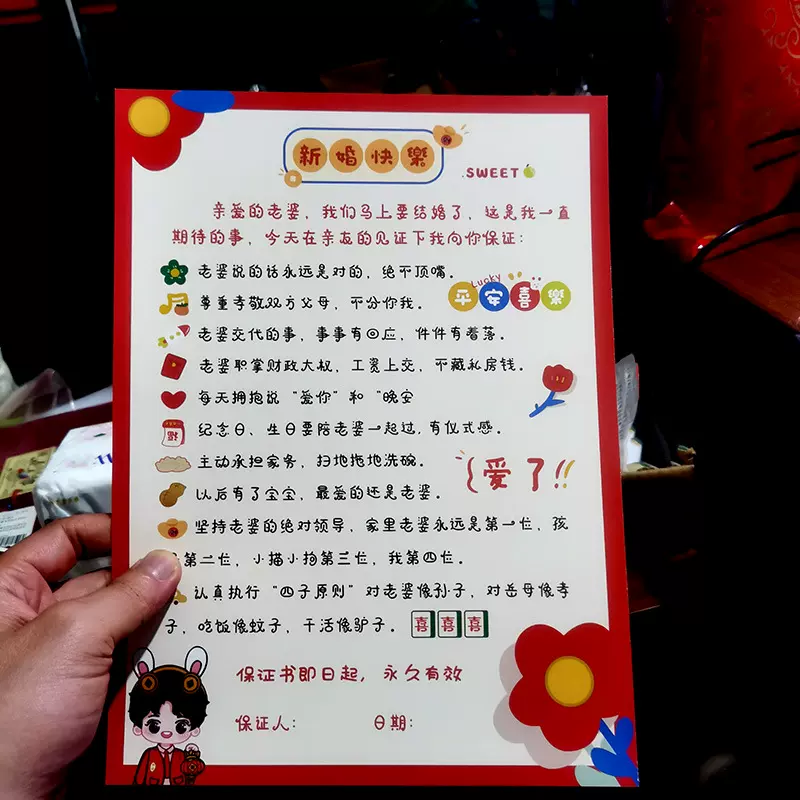 新婚快樂
.SWEET
亲爱的老婆，我们马上要结婚了，这是我一直
期待的事，今天在亲友的见证下我向你保证：
老婆说的话永远是对的，绝不顶嘴。
Lucky
平安喜樂
尊重孝敬双方父母，不分你我。
老婆交代的事，事事有回应，件件有着落。
老婆职掌财政大叔，工资上交，不藏私房钱。
每天拥抱说“爱你”和“晚安
纪念日、生日要陪老婆一起过，有仪式感。
主动承担家务，扫地拖地洗碗。
爱了!!
以后有了宝宝，最爱的还是老婆。
坚持老婆的绝对领导，家里老婆永远是第一位，孩
第二位，小猫小狗第三位，我第四位。
认真执行“四子原则”对老婆像孙子，对岳母像孝
子，吃饭像蚊子，干活像驴子。
喜喜喜
保证书即日起，永久有效
保证人： 日期：